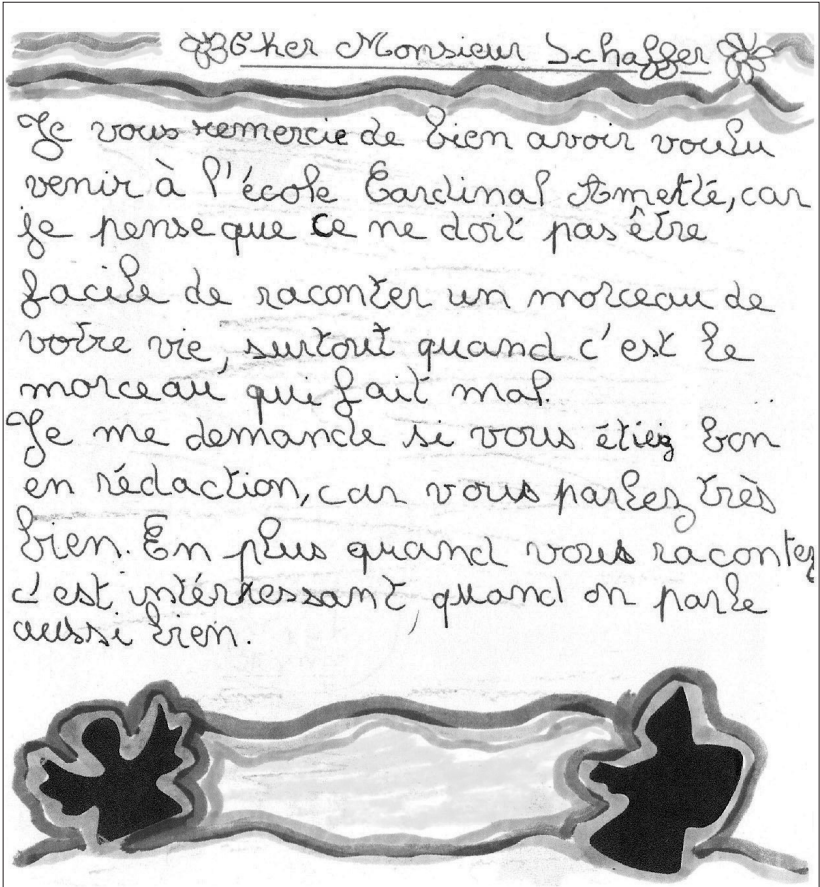 Cher Monsieur Schaffer
Je vous remercie de bien avoir voulu
venir à l'école Cardinal Amette, car
je pense que ce ne doit pas être
facile de raconter un morceau de
votre vie, surtout quand c'est le
morceau qui fait mal.
Je me demande si vous étiez bon
en rédaction, car vous parlez très
bien. En plus quand vous racontez
c'est intérressant, quand on parle
aussi bien.